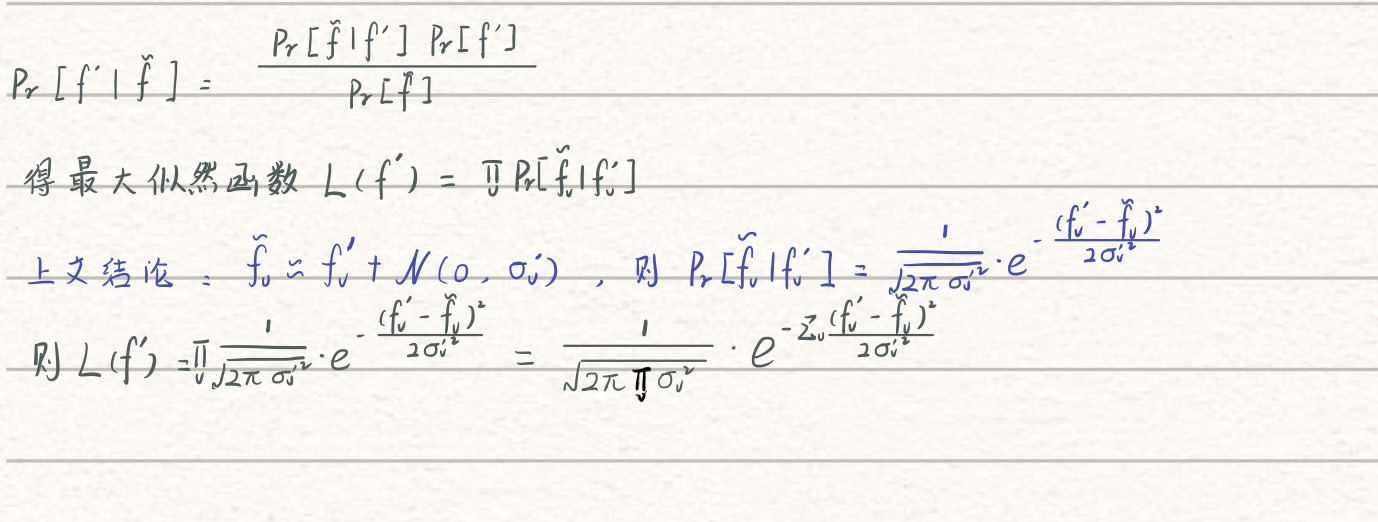 Pr[f'|f̃] = Pr[f̃|f'] Pr[f'] / Pr[f̃]
得最大似然函数 L(f') = ∏_v Pr[f̃_v|f_v']
上文结论：f̃_v ≈ f_v' + N(0, σ_v')，则 Pr[f̃_v|f_v'] = 1/√(2π σ_v'²) · e^(-(f_v' - f̃_v)²/(2σ_v'²))
则 L(f') = ∏_v 1/√(2π σ_v'²) · e^(-(f_v' - f̃_v)²/(2σ_v'²)) = 1/√(2π ∏_v σ_v²) · e^(-Σ_v (f_v' - f̃_v)²/(2σ_v'²))